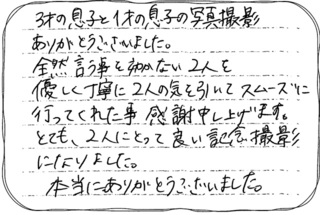 3才の息子と1才の息子の写真撮影
ありがとうございました。
全然言う事を聞かない2人を
優しく丁寧に2人の気を引いてスムーズに
行ってくれた事感謝申し上げます。
とても、2人にとって良い記念撮影
になりました。
本当にありがとうございました。